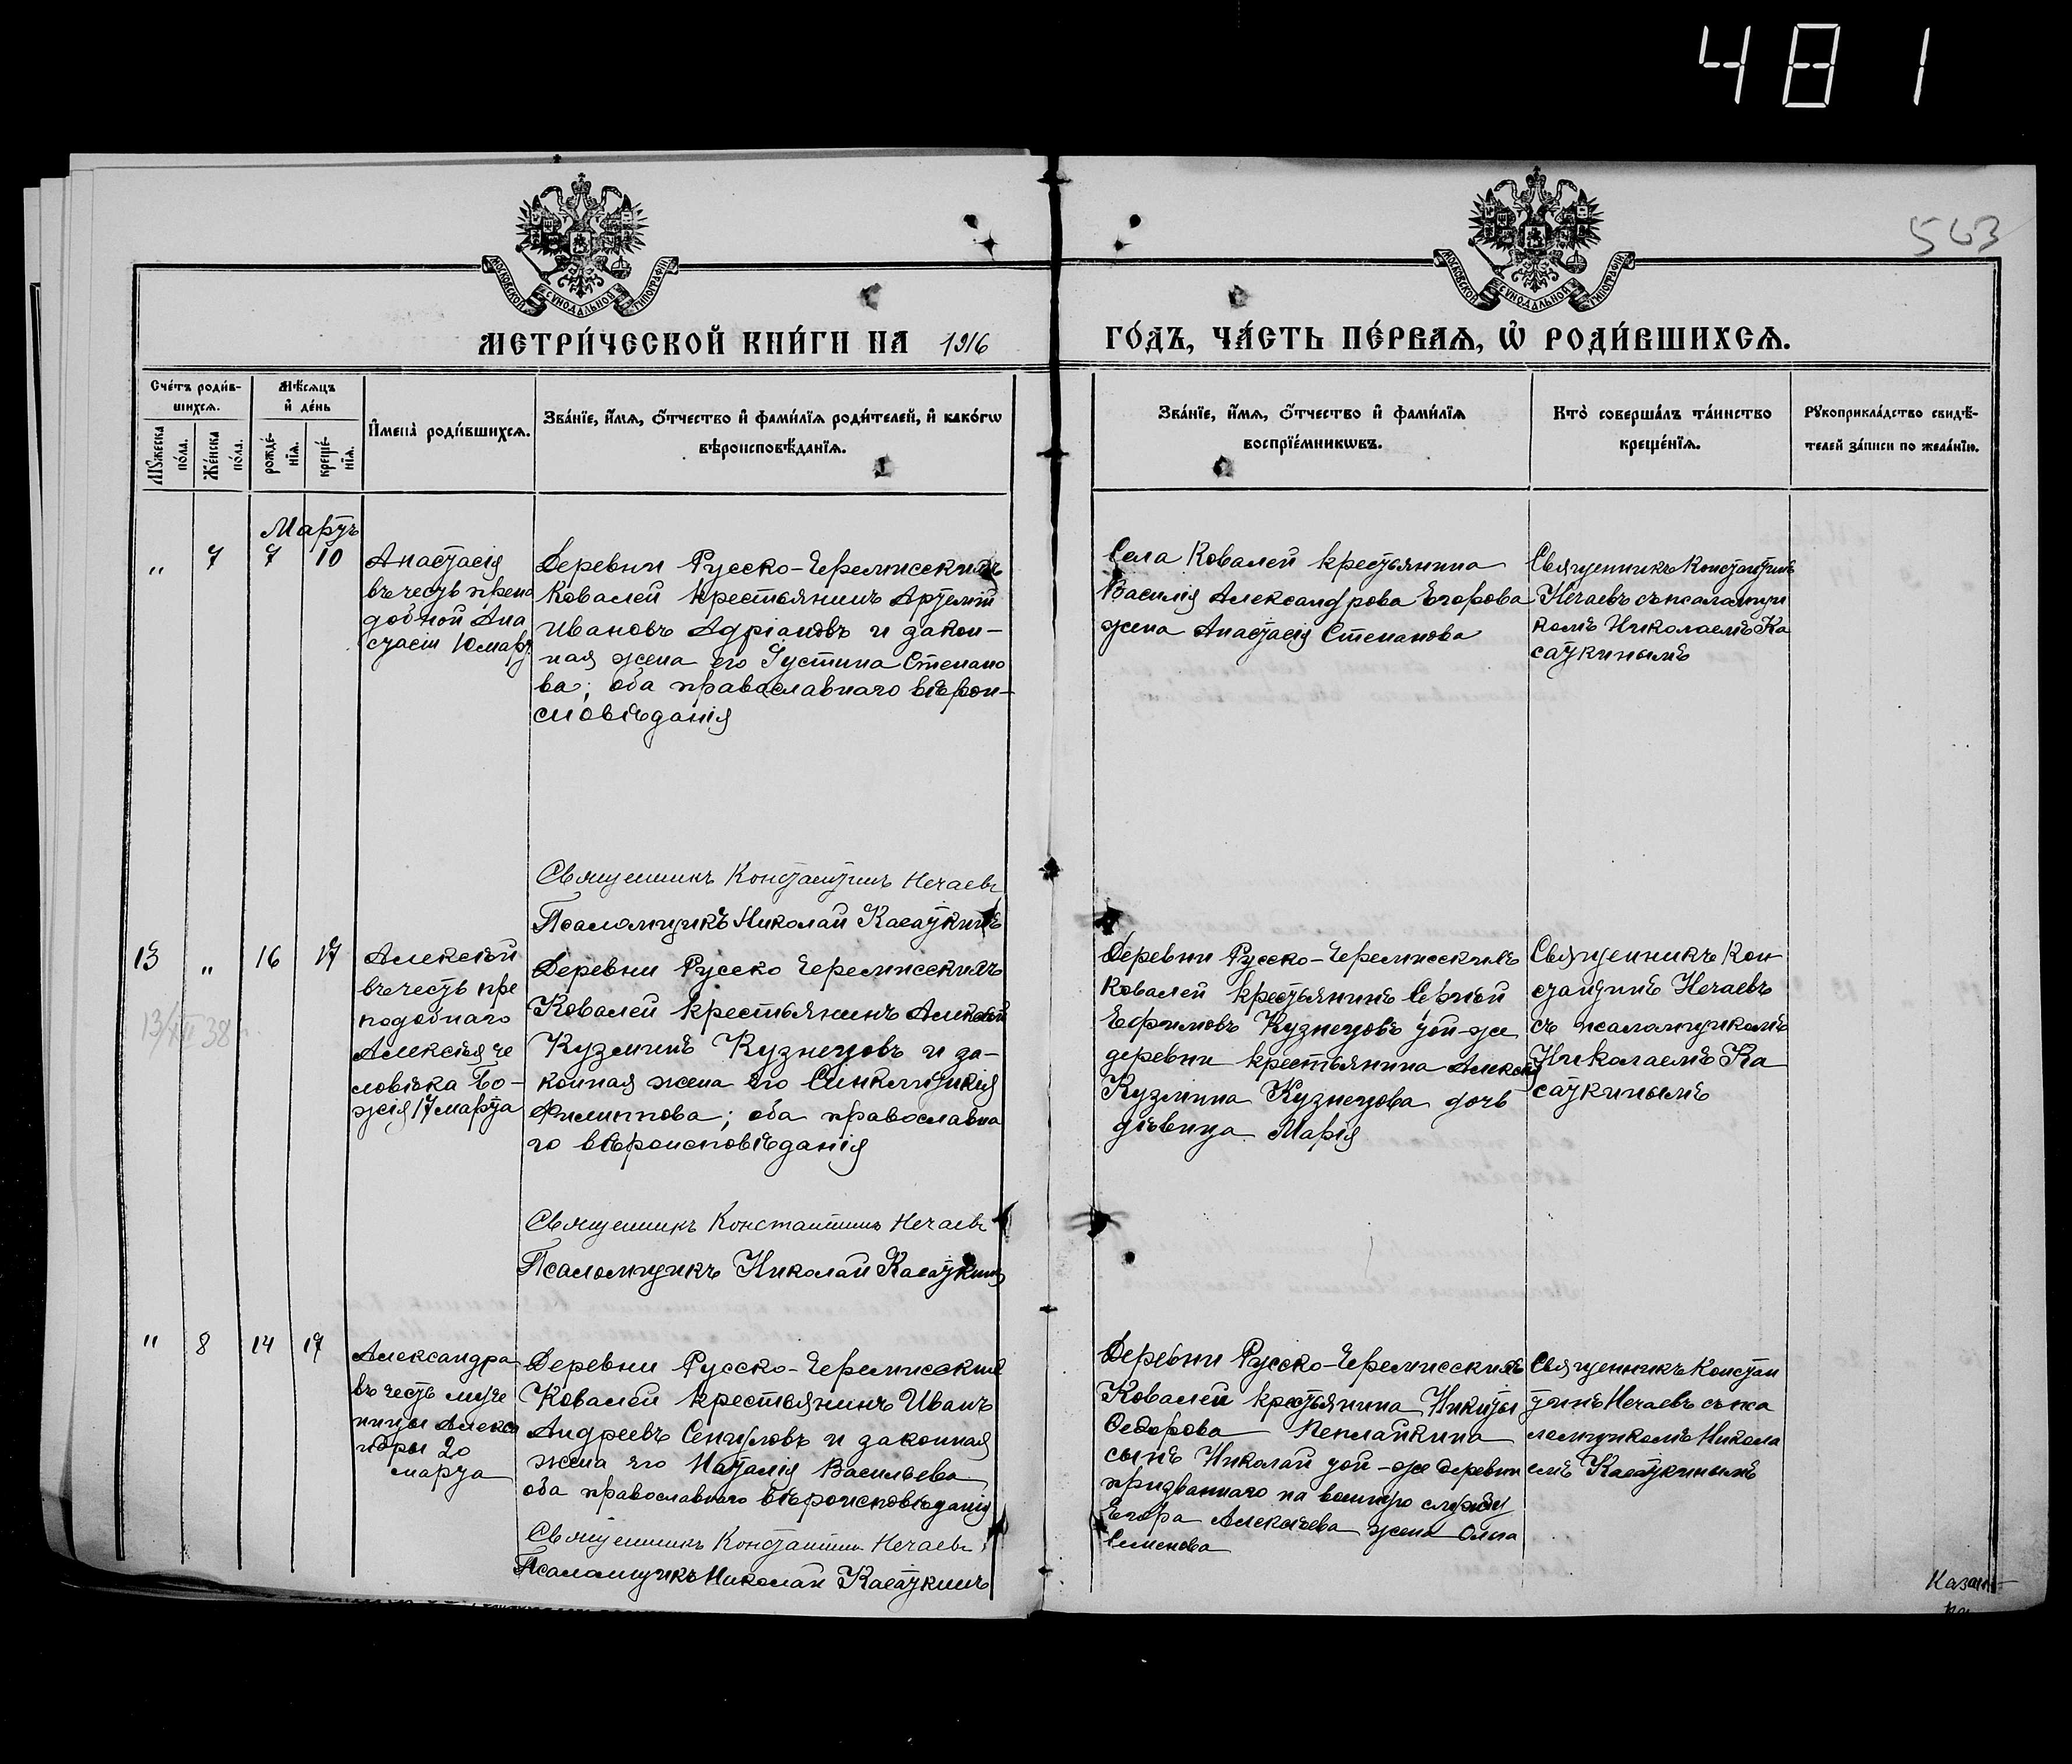 481
563
МОСКОВСКОЙ СѴНОДАЛЬНОЙ ТИПОГРАФІИ
МОСКОВСКОЙ СѴНОДАЛЬНОЙ ТИПОГРАФІИ
МЕТРИ́ЧЕСКОЙ КНИ́ГИ НА 1916
ГО́ДЪ, ЧА́СТЬ ПЕ́РВАѦ, Ѡ҆ РОДИ́ВШИХСѦ.
Сче́тъ роди́в-
шихсѧ.
Мꙋ́жеска по́ла.
Же́нска по́ла.
Мѣ́сѧцъ
и҆ де́нь
рожде́-
нїѧ.
креще́-
нїѧ.
И҆мена̀ роди́вшихсѧ.
Зва́нїе, и҆́мѧ, ѻ҆́тчество и҆ фами́лїѧ роди́телей, и҆ како́гѡ
вѣроисповѣ́данїѧ.
Зва́нїе, и҆́мѧ, ѻ҆́тчество и҆ фами́лїѧ
воспрїе́мникѡвъ.
Кто̀ соверша́лъ та́инство
креще́нїѧ.
Рꙋкоприкла́дство свидѣ́-
телей за́писи по жела́нїю.
Мартъ
" 7 7 10
Анастасія
въ честь препо
добной Ана
стасіи 10 март
Деревни Русско-Черемисскихъ
Ковалей крестьянинъ Артемій
Ивановъ Адріановъ и закон-
ная жена его Іустина Степано
ва; оба православнаго вѣрои-
сповѣданія
Священникъ Константинъ Нечаевъ
Псаломщикъ Николай Касаткинъ
Села Ковалей крестьянина
Василія Александрова Егорова
жена Анастасія Степанова
Священникъ Константинъ
Нечаевъ съ псаломщи
комъ Николаемъ Ка
саткинымъ
13 " 16 17
13/XII 38
Алексѣй
въ честь пре
подобнаго
Алексѣя че
ловѣка Бо-
жія 17 марта
Деревни Русско Черемисскихъ
Ковалей крестьянинъ Алексѣй
Кузминъ Кузнецовъ и за-
конная жена его Синклитикія
Филиппова; оба православна
го вѣроисповѣданія
Священникъ Константинъ Нечаевъ
Псаломщикъ Николай Касаткинъ
Деревни Русско-Черемисскихъ
Ковалей крестьянинъ Сергѣй
Ефимовъ Кузнецовъ той-же
деревни крестьянина Алексѣя
Кузмина Кузнецова дочь
дѣвица Марія
Священникъ Кон-
стантинъ Нечаевъ
съ псаломщикомъ
Николаемъ Ка
саткинымъ
" 8 14 17
Александра
въ честь муче
ницы Алекса
ндры 20
марта
Деревни Русско-Черемисскихъ
Ковалей крестьянинъ Иванъ
Андреевъ и законная
жена его Наталія Васильева
оба православнаго вѣроисповѣданія
Священникъ Константинъ Нечаевъ
Псаломщикъ Николай Касаткинъ
Деревни Русско-Черемисскихъ
Ковалей крестьянина Никиты
Ѳедорова Пеплайкина
сынъ Николай той-же деревни
призваннаго на военную службу
Егора Алексѣева жена Ольга
Семенова
Священникъ Констан
тинъ Нечаевъ съ пса
ломщикомъ Никола
емъ Касаткинымъ
Казан-